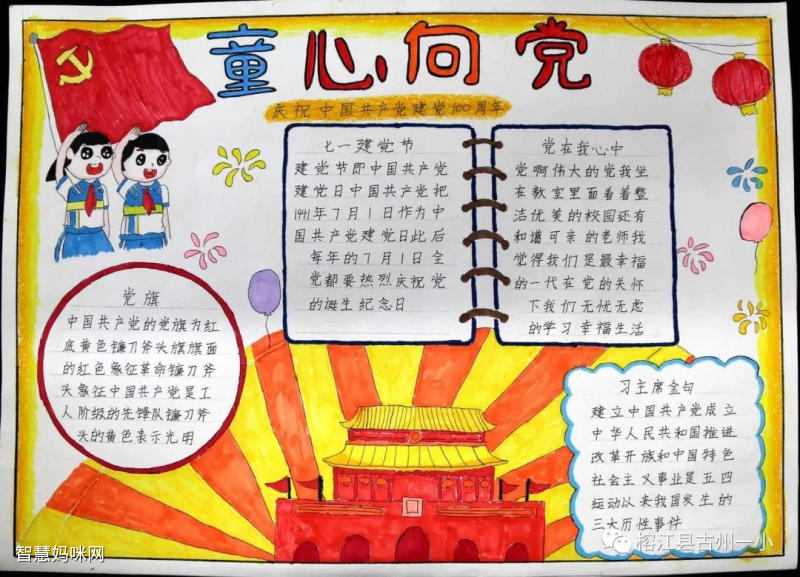 童心向党
庆祝中国共产党建党100周年
七一建党节
建党节即中国共产党
建党日中国共产党把
1941年7月1日作为中
国共产党建党日此后
每年的7月1日全
党都要热烈庆祝党
的诞生纪念日
党在我心中
党啊伟大的党我坐
在教室里面看着整
洁优美的校园还有
和蔼可亲的老师我
觉得我们是最幸福
的一代在党的关怀
下我们无忧无虑
的学习幸福生活
党旗
中国共产党的党旗为红
底黄色镰刀斧头旗旗面
的红色象征革命镰刀斧
头象征中国共产党是工
人阶级的先锋队镰刀斧
头的黄色表示光明
习主席金句
建立中国共产党成立
中华人民共和国推进
改革开放和中国特色
社会主义事业是五四
运动以来我国发生的
三大历性事件
智慧妈咪网
榕江县古州一小